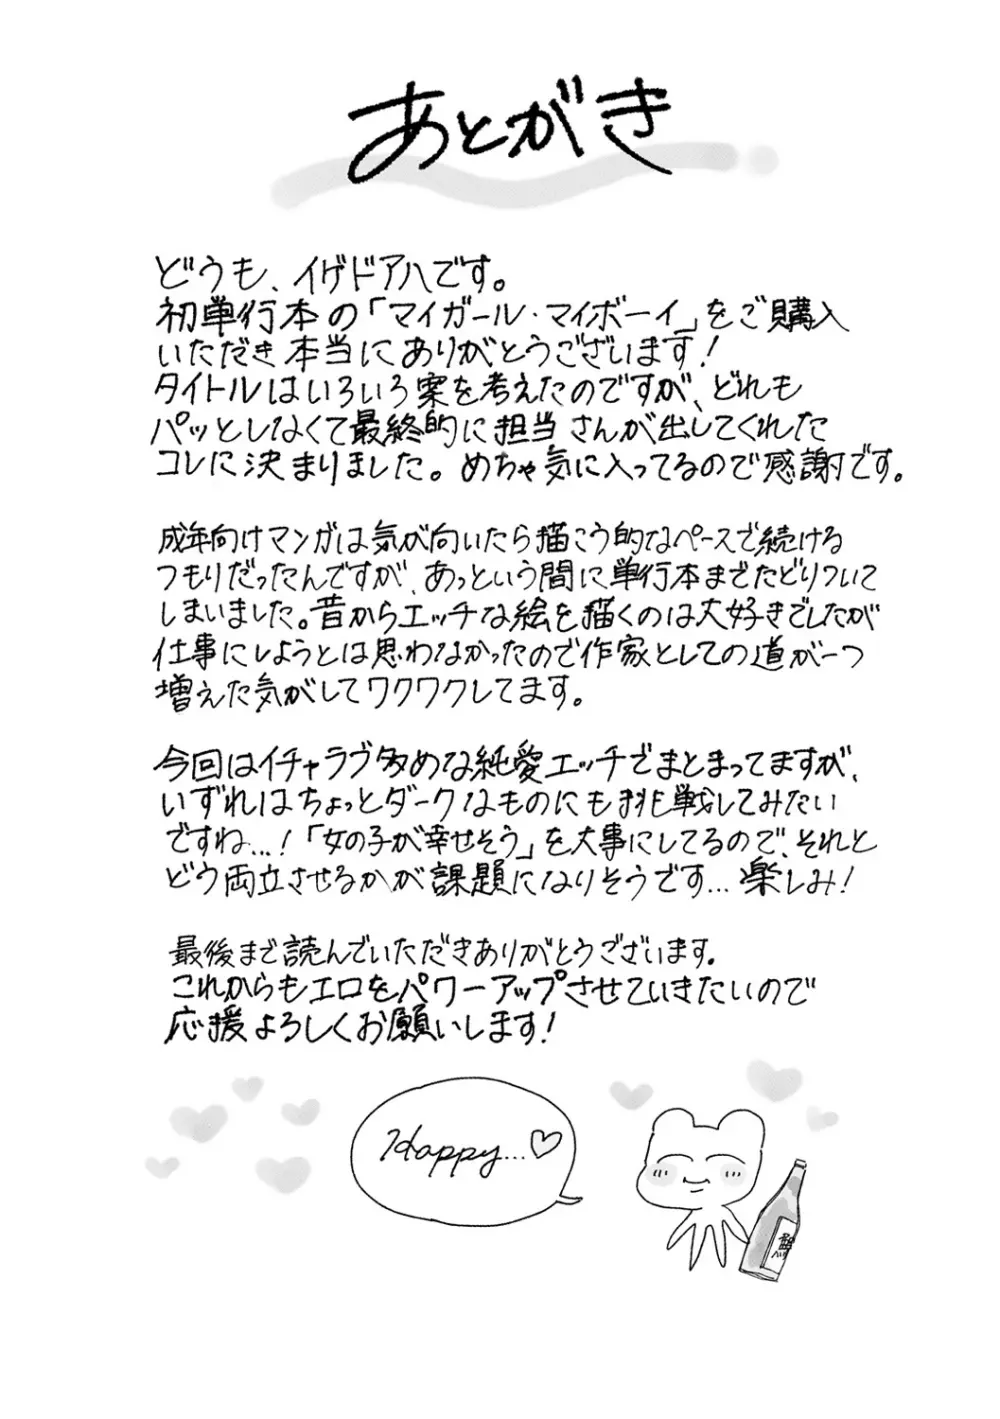 あとがき
どうも、イゲドアハです。
初単行本の「マイガール・マイボーイ」をご購入
いただき本当にありがとうございます！
タイトルはいろいろ案を考えたのですが、どれも
パッとしなくて最終的に担当さんが出してくれた
コレに決まりました。めちゃ気に入ってるので感謝です。
成年向けマンガは気が向いたら描こう的なペースで続ける
つもりだったんですが、あっという間に単行本までたどりついて
しまいました。昔からエッチな絵を描くのは大好きでしたが
仕事にしようとは思わなかったので作家としての道が一つ
増えた気がしてワクワクしてます。
今回はイチャラブ多めな純愛エッチでまとまってますが、
いずれはちょっとダークなものにも挑戦してみたい
ですね...！「女の子が幸せそう」を大事にしてるので、それと
どう両立させるかが課題になりそうです...楽しみ！
最後まで読んでいただきありがとうございます。
これからもエロをパワーアップさせていきたいので
応援よろしくお願いします！
Happy...♡